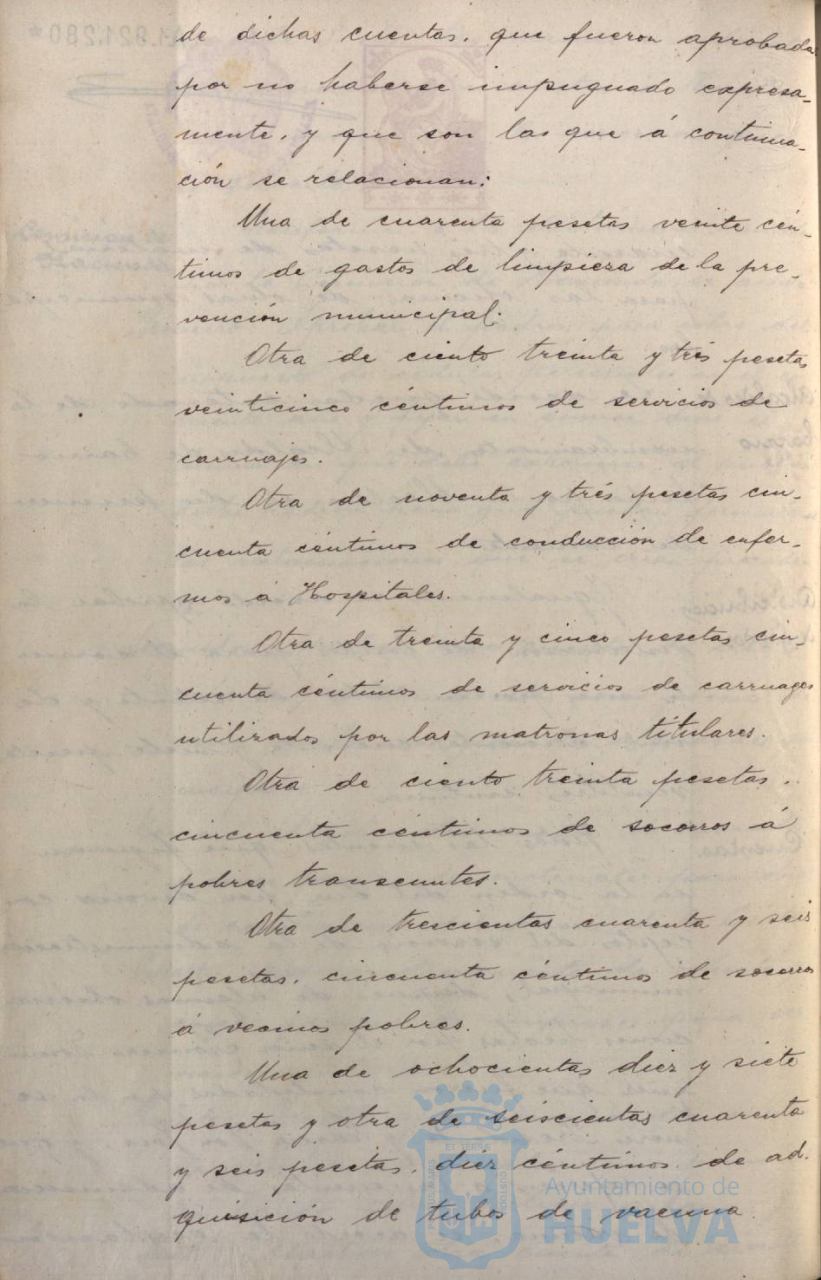 de dichas cuentas, que fueron aprobadas
por no haberse impugnado expresa-
mente, y que son las que á continua-
ción se relacionan:
Una de cuarenta pesetas veinte cén-
timos de gastos de limpieza de la pre-
vención municipal.
Otra de ciento treinta y trés pesetas
veinticinco céntimos de servicios de
carruajes.
Otra de noventa y trés pesetas cin-
cuenta céntimos de conducción de enfer-
mos á Hospitales.
Otra de treinta y cinco pesetas cin-
cuenta céntimos de servicios de carruages
utilizados por las matronas titulares.
Otra de ciento treinta pesetas,
cincuenta céntimos de socorros á
pobres transeuntes.
Otra de trescientas cuarenta y seis
pesetas, cincuenta céntimos de socorros
á vecinos pobres.
Una de ochocientas diez y siete
pesetas y otra de seiscientas cuarenta
y seis pesetas, diez céntimos, de ad-
quisición de tubos de vacuna
Ayuntamiento de
HUELVA